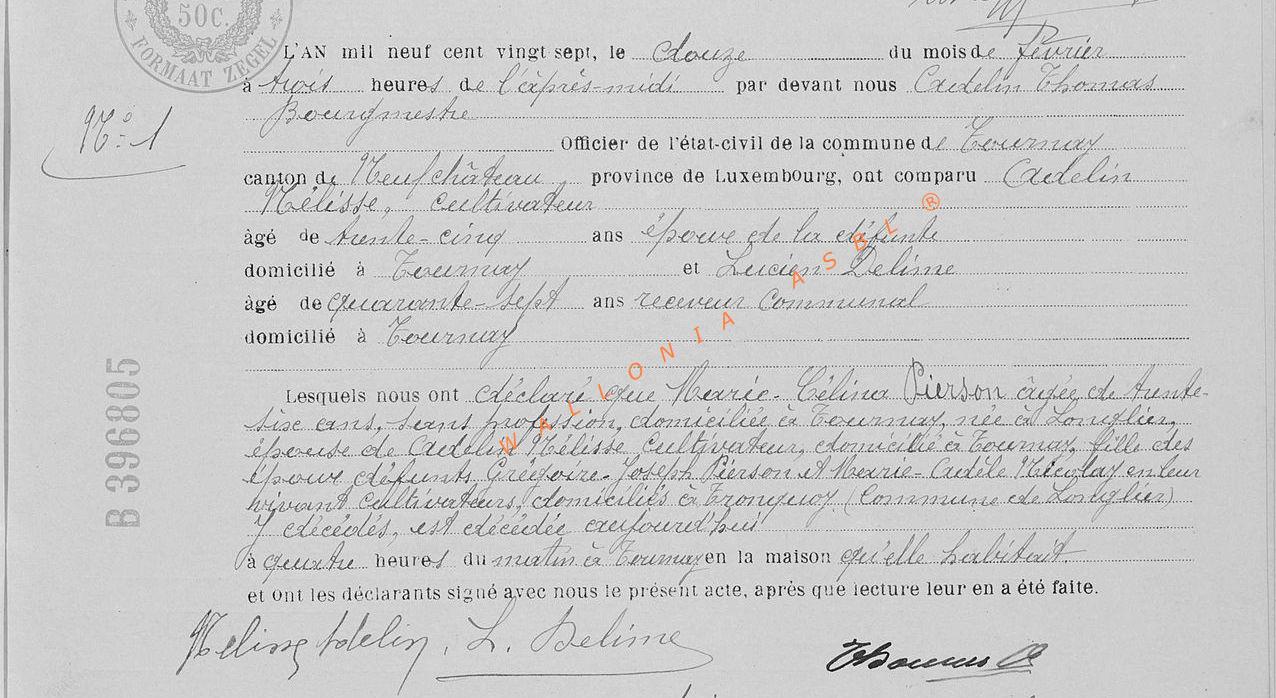 50C.
FORMAAT ZEGEL
L'AN mil neuf cent vingt sept, le douze du mois de février
à trois heures de l'après-midi par devant nous Adelin Thomas
Bourgmestre
N° 1
Officier de l'état-civil de la commune de Tournay
canton de Neufchâteau, province de Luxembourg, ont comparu Adelin
Mélisse, cultivateur
âgé de trente-cinq ans époux de la défunte
domicilié à Tournay et Lucien Delime
âgé de quarante-sept ans receveur communal
domicilié à Tournay
Lesquels nous ont déclaré que Marie-Célina Pierson âgée de trente-
six ans, sans profession, domiciliée à Tournay, née à Longlier,
épouse de Adelin Mélisse cultivateur, domicilié à Tournay, fille des
époux défunts Grégoire-Joseph Pierson et Marie-Adèle Nicolay en leur
vivant cultivateurs, domiciliés à Tronquoy (Commune de Longlier)
y décédés, est décédée aujourd'hui
à quatre heures du matin à Tournay en la maison qu'elle habitait.
et ont les déclarants signé avec nous le présent acte, après que lecture leur en a été faite.
Adelin, L. Delime
Thomas A
B 396805
WALLONIA ASBL ®